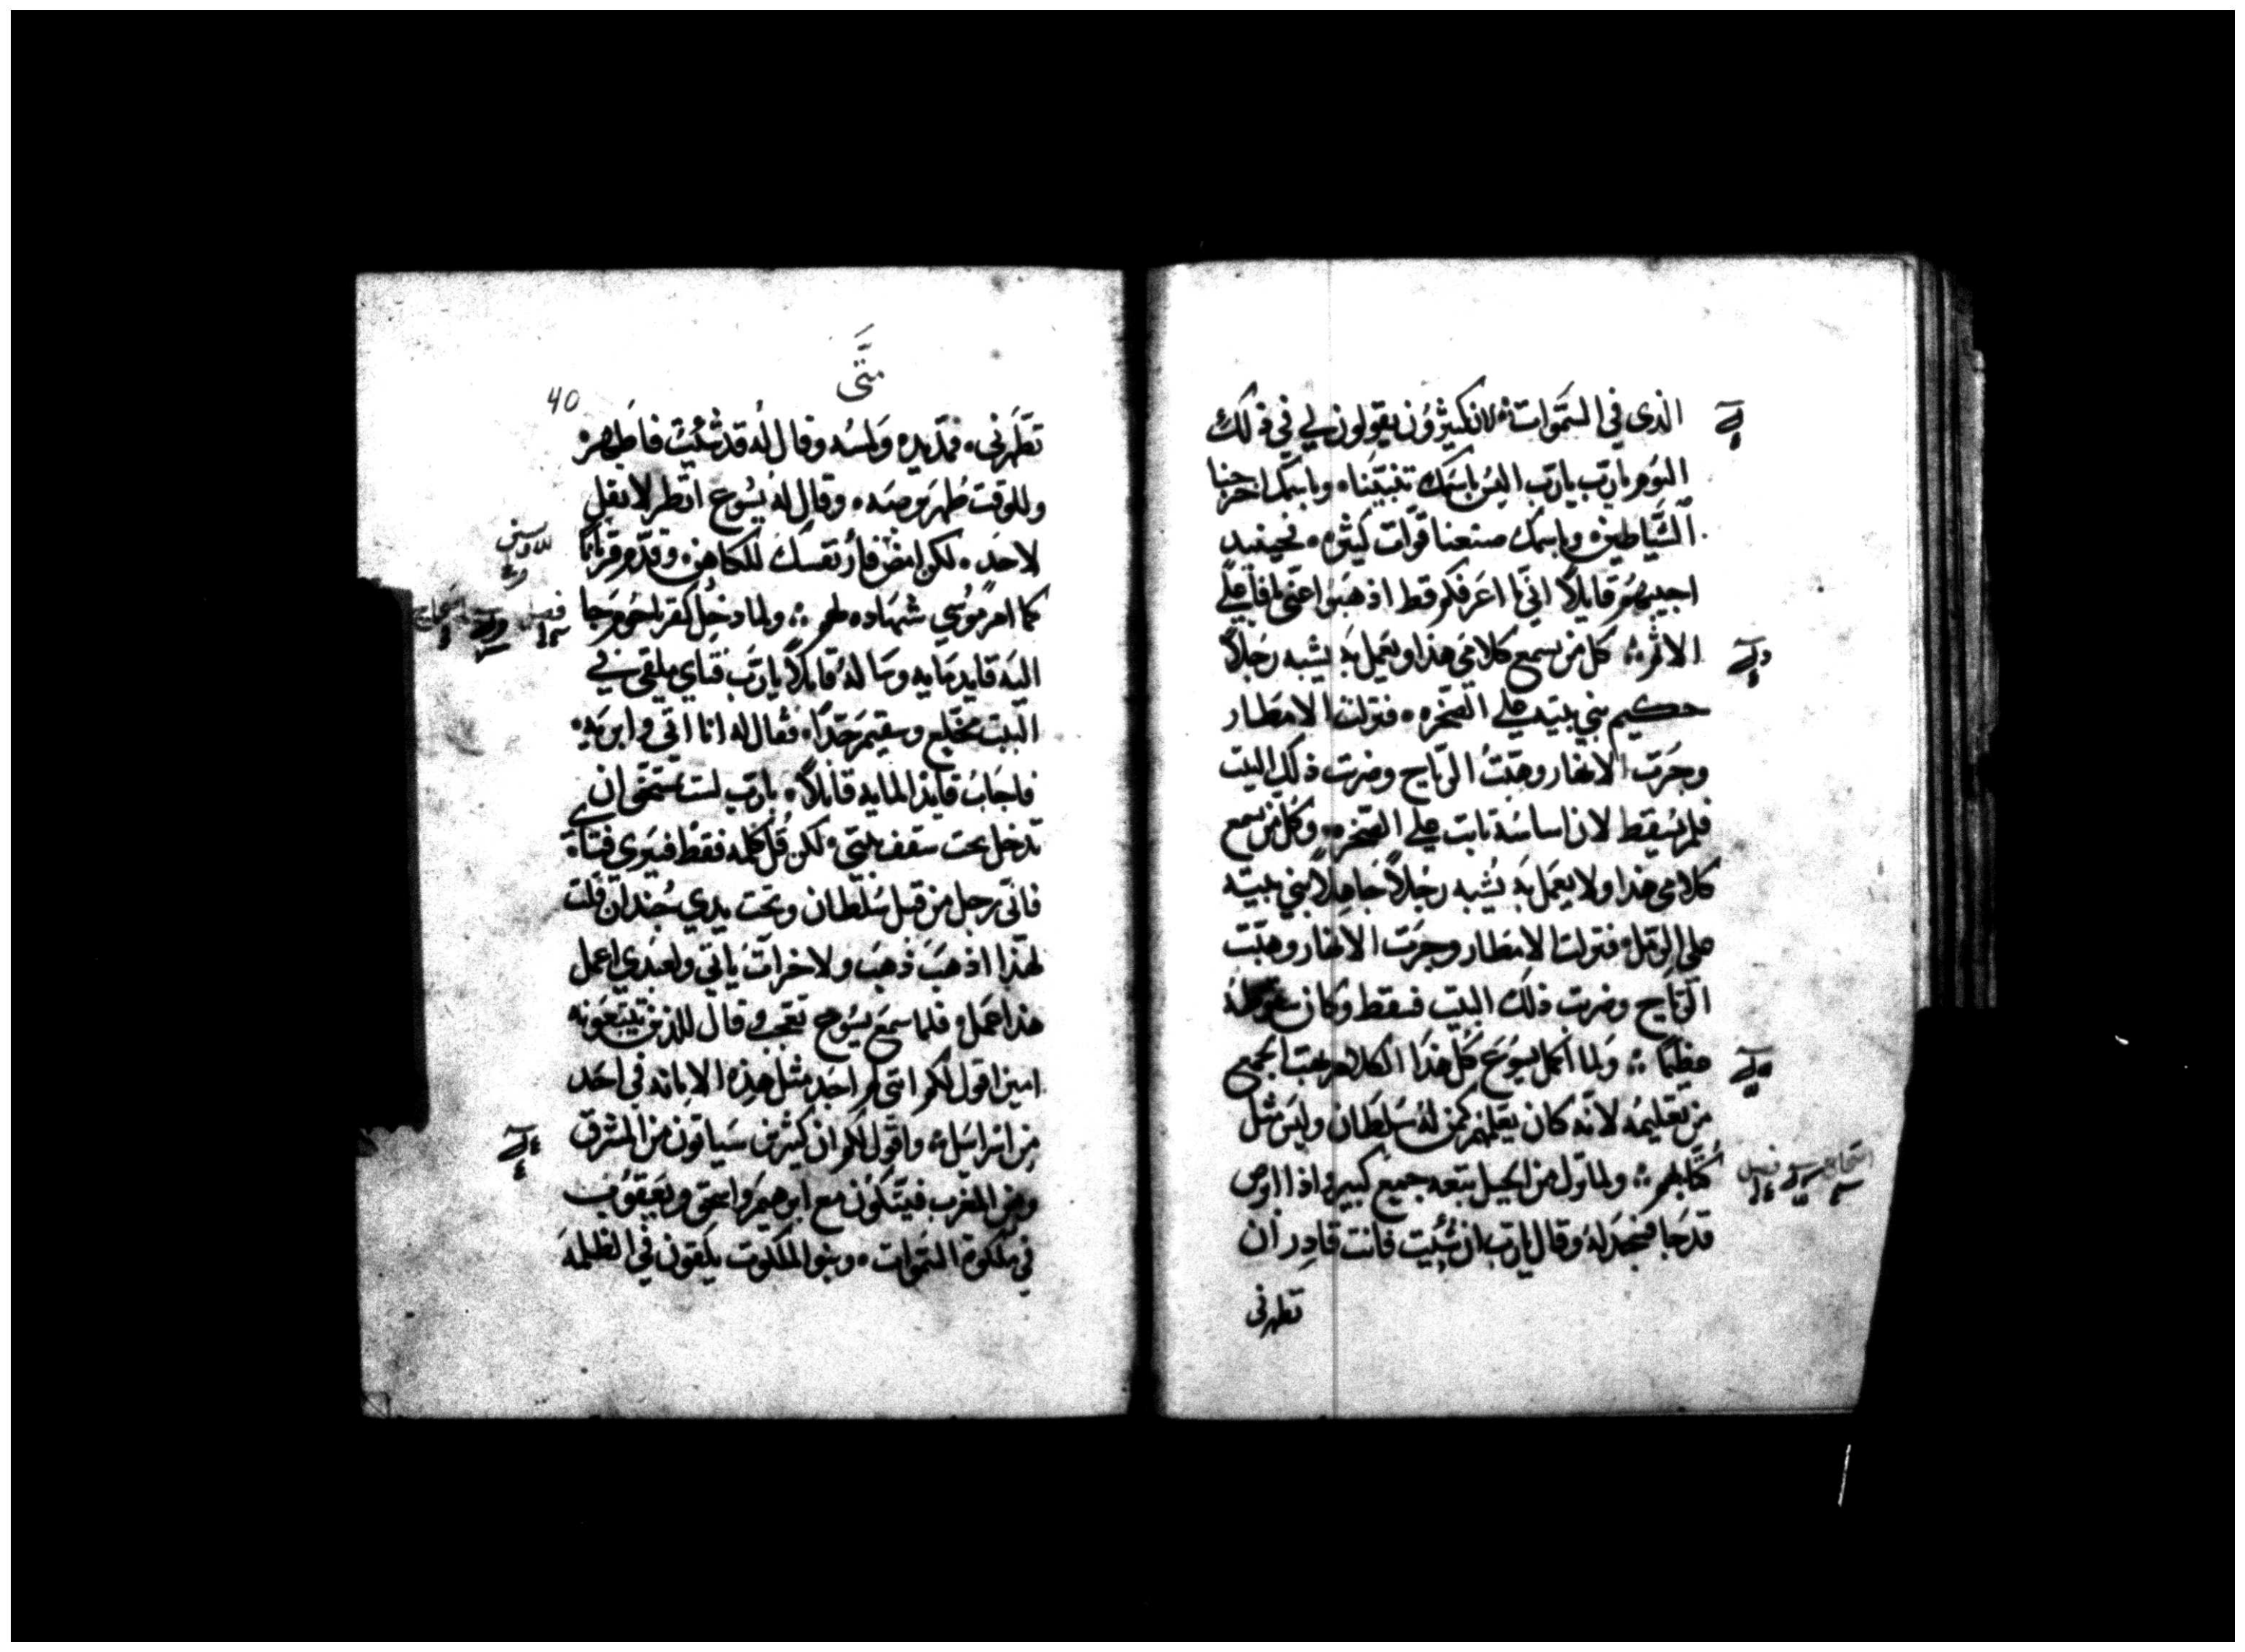 الذى في السموات لان كثيرون يقولون لي في ذلك
اليوم يارب يارب اليس باسمك تنبينا وباسمك اخرجنا
الشياطين وباسمك صنعنا قوات كثيره فحينيد
اجيبهم قايلاً اني ما اعرفكم قط اذهبوا عني يا فاعلي
الاثم كل من يسمع كلامي هذا ويعمل به يشبه رجلاً
حكيم بني بيته علي الصخره فنزلت الامطار
وجرت الانهار وهبت الرياح وضربت ذلك البيت
فلم يسقط لان اساسه ثابت علي الصخره وكل من يسمع
كلامي هذا ولا يعمل به يشبه رجلاً جاهلاً بني بيته
على الرمل فنزلت الامطار وجرت الانهار وهبت
الرياح وضربت ذلك البيت فسقط وكان سقوطه
عظيمًا ولما اكمل يسوع كل هذا الكلام بهت الجميع
من تعليمه لانه كان يعلمهم كمن له سلطان وليس مثل
كتابهم ولما نزل من الجبل تبعه جميع كبير واذا ابرص
قد جا فسجد له وقال يارب ان شيت فانت قادر ان
تطهرني
متَّى
40
تطهرني فمد يده ولمسه وقال له قد شيت فاطهر
وللوقت طهر برصه وقال له يسوع انظر لا تقل
لاحد لكن امض فأر نفسك للكاهن وقدم قربانًا
كما امر موسي شهاده لهم ولما دخل كفرناحوم جا
اليه قايد مايه وساله قايلاً يارب فتاي ملقى في
البيت مخلع وسقيم جدًا فقال له انا اتي وابريه
فاجاب قايد المايه قايلاً يارب لست مستحق ان
تدخل تحت سقف بيتي لكن قل كلمه فقط فيبري فتاي
فاني رجل من قبل سلطان وتحت يدي جند ان قلت
لهذا اذهب ذهب ولاخر ات ياتي ولعبدي اعمل
هذا عمل فلما سمع يسوع تعجب وقال للذين يتبعونه
امين اقول لكم انني لم اجد مثل هذه الامانه في احد
من اسراييل واقول لكم ان كثيرين سياتون من المشرق
ومن المغرب فيتكون مع ابرهيم واسحق ويعقوب
في ملكوة السموات وبنوا الملكوت يلقون في الظلمه